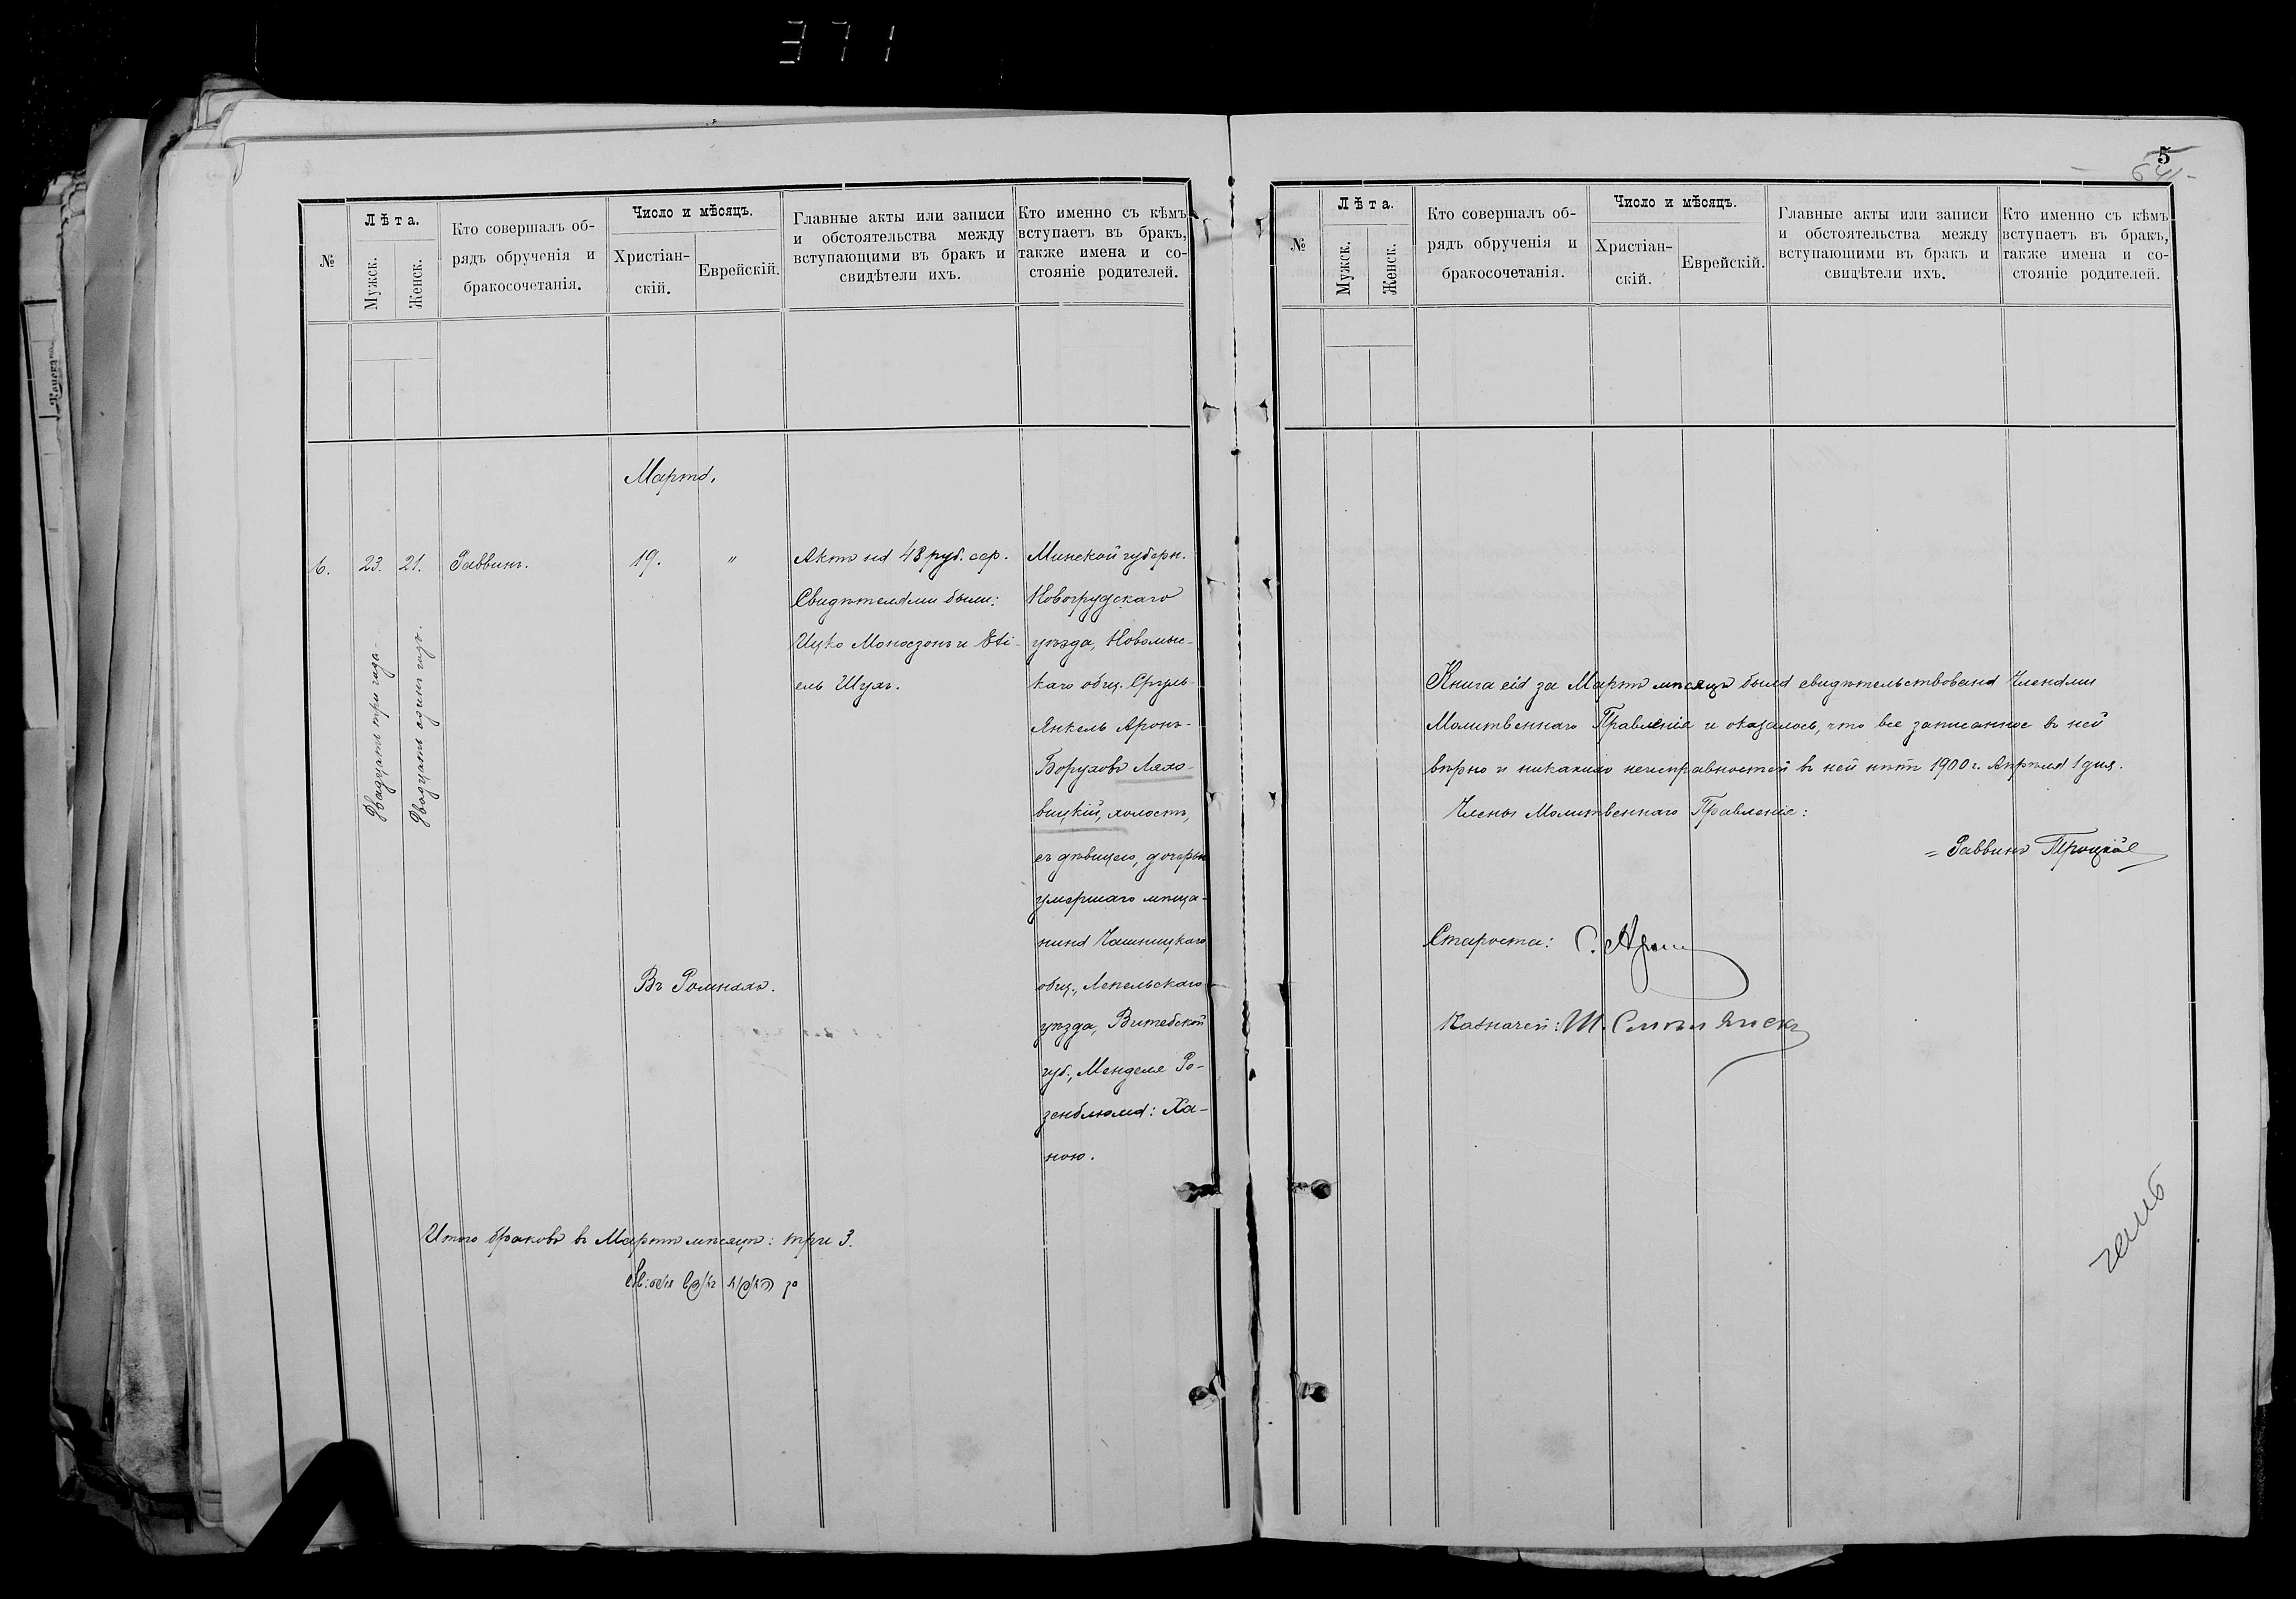 371
№
Лѣта.
Мужск.
Женск.
Кто совершалъ об-
рядъ обрученія и
бракосочетанія.
Число и мѣсяцъ.
Христіан-
скій.
Еврейскій.
Главные акты или записи
и обстоятельства между
вступающими въ бракъ и
свидѣтели ихъ.
Кто именно съ кѣмъ
вступаетъ въ бракъ,
также имена и со-
стояніе родителей.
Мартъ.
6.
23.
21.
Двадцать три года.
Двадцать одинъ годъ.
Раввинъ.
19.
"
Актъ на 48 руб. сер.
Свидѣтелями были:
Ицко Моносзонъ и
ель Шухъ.
Минской губерн.
Новогрудскаго
уѣзда, Новомыс-
каго общ. Сруль-
Янкель Аронъ-
Боруховъ Ляхо-
вицкій, холостъ,
съ дѣвицею, дочерью
умершаго мѣща-
нина Чашницкаго
общ., Лепельскаго
уѣзда, Витебской
губ., Менделя Ро-
зенблюма: Ха-
ною.
Въ Ромнахъ.
Итого браковъ въ Мартѣ мѣсяцѣ: три 3.
5
№
Лѣта.
Мужск.
Женск.
Кто совершалъ об-
рядъ обрученія и
бракосочетанія.
Число и мѣсяцъ.
Христіан-
скій.
Еврейскій.
Главные акты или записи
и обстоятельства между
вступающими въ бракъ и
свидѣтели ихъ.
Кто именно съ кѣмъ
вступаетъ въ бракъ,
также имена и со-
стояніе родителей.
Книга сія за Мартъ мѣсяцъ была свидѣтельствована Членами
Молитвеннаго Правленія и оказалось, что все записанное въ ней
вѣрно и никакихъ неисправностей въ ней нѣтъ 1900 г. Апрѣля 1 дня.
Члены Молитвеннаго Правленія:
Раввинъ Троцкій
Староста:
Казначей: Ш.